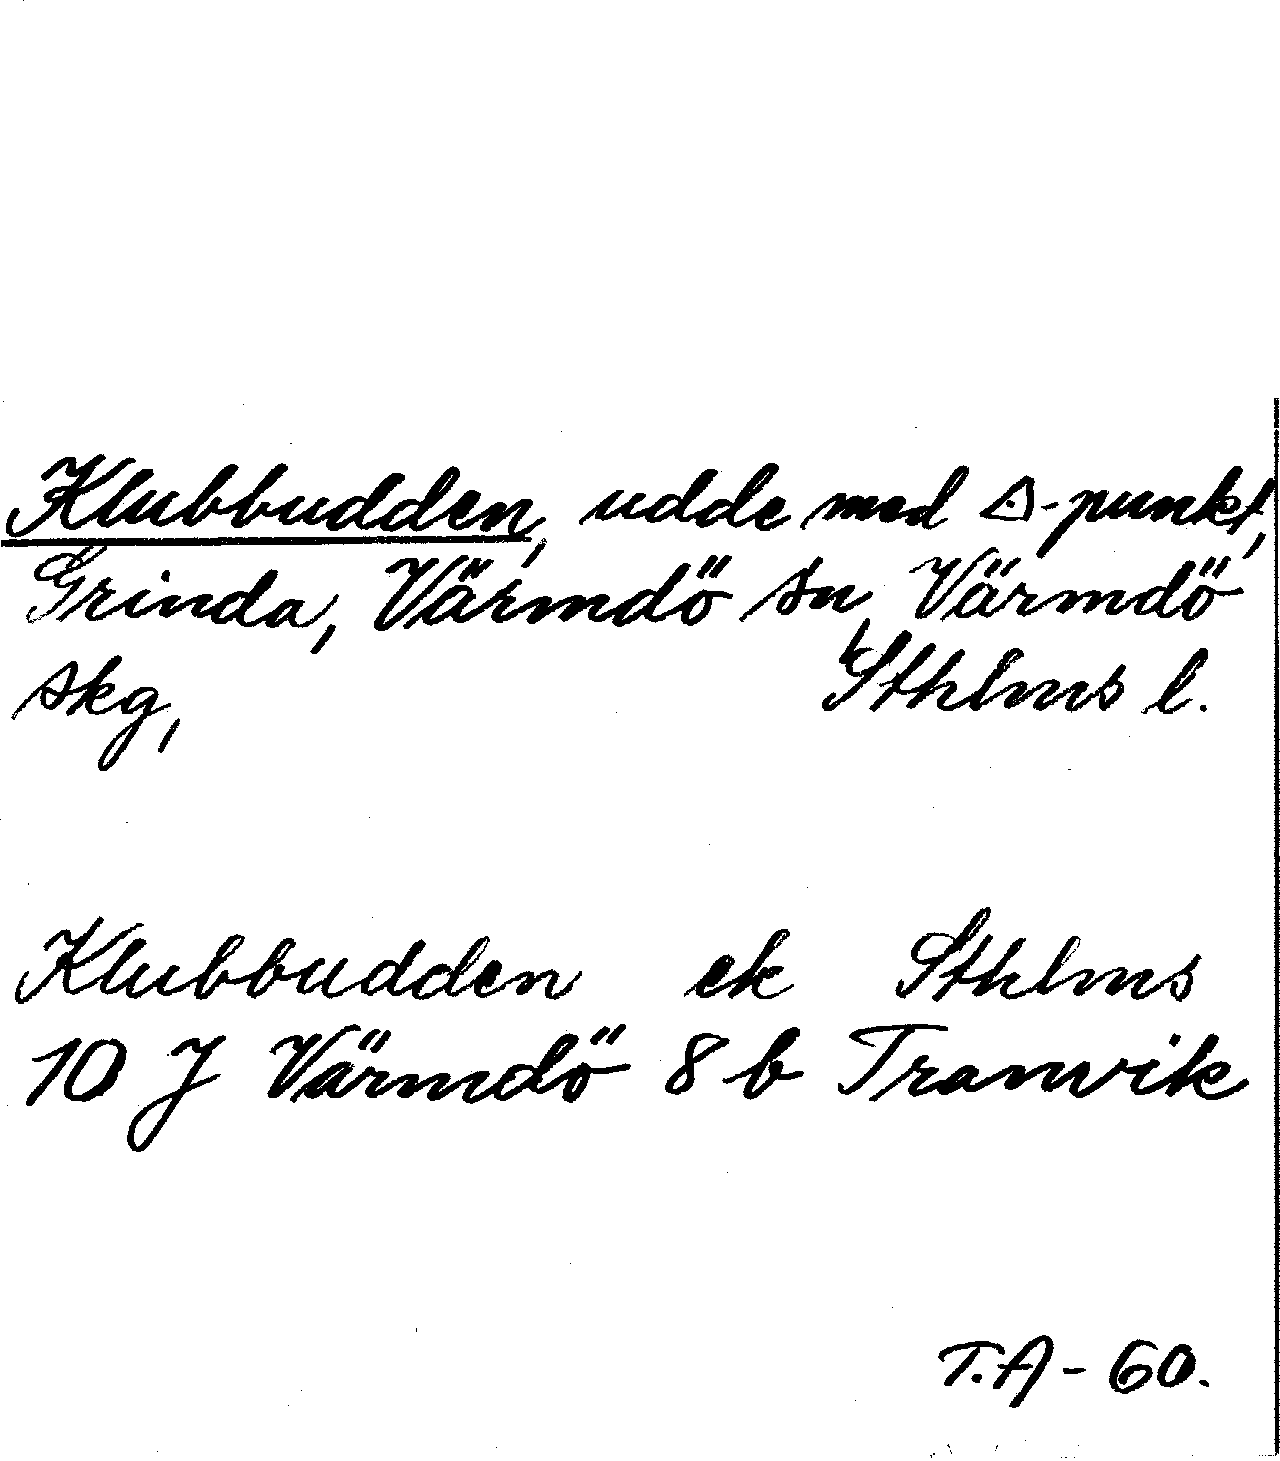 Klubbudden, udde med △-punkt,
Grinda, Värmdö sn, Värmdö
skg, Sthlms l.
Klubbudden ek Sthlms
10 J Värmdö 8 b Tranvik
T.A - 60.